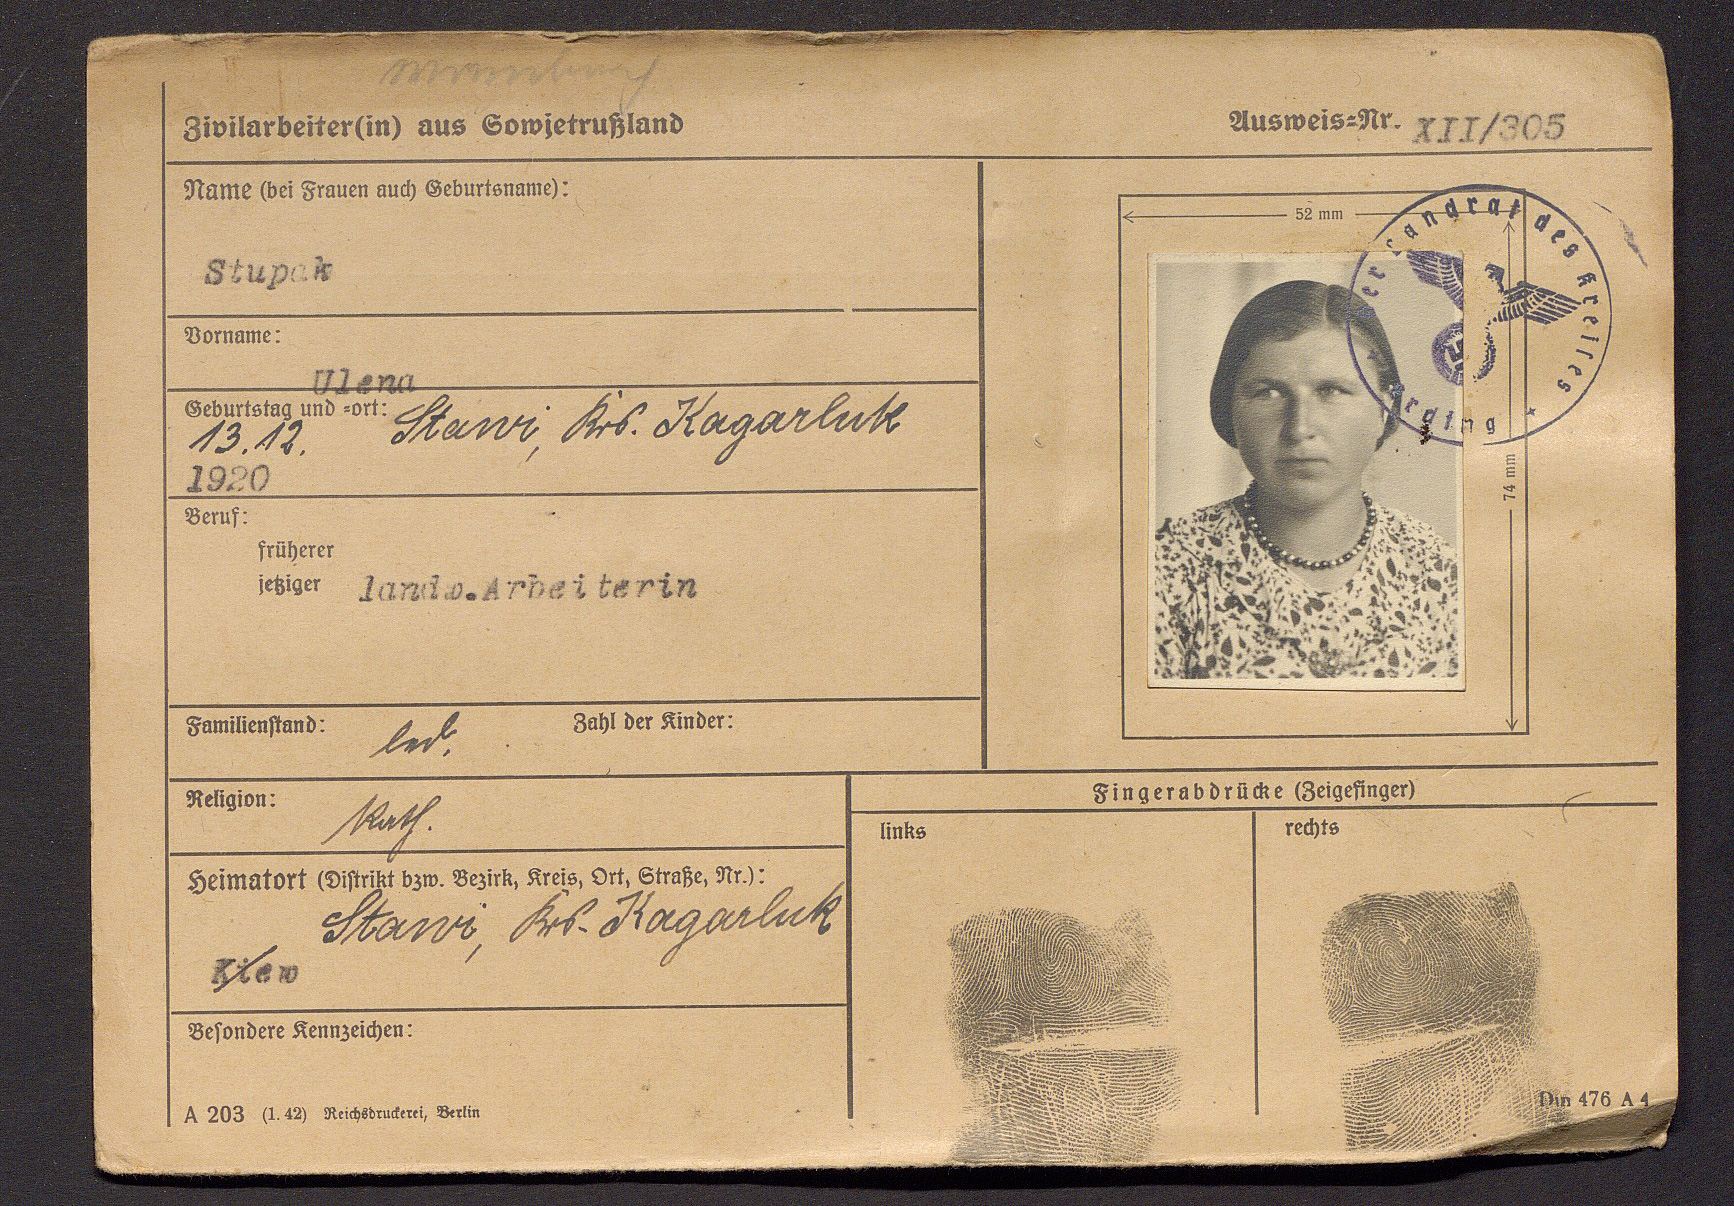 Zivilarbeiter(in) aus Sowjetrußland
Ausweis=Nr. XII/305
Name (bei Frauen auch Geburtsname):
Stupak
Vorname:
Ulena
Geburtstag und =ort:
13.12. Stawi, Krs. Kagarluk
1920
Beruf:
früherer
jetziger landw.Arbeiterin
Familienstand: led. Zahl der Kinder:
Religion:
Kath.
Heimatort (Distrikt bzw. Bezirk, Kreis, Ort, Straße, Nr.):
Stawi, Krs. Kagarluk
Kiew
Besondere Kennzeichen:
A 203 (1. 42) Reichsdruckerei, Berlin
52 mm
74 mm
Der Landrat des Kreises
Erding
Fingerabdrücke (Zeigefinger)
links
rechts
Din 476 A 4